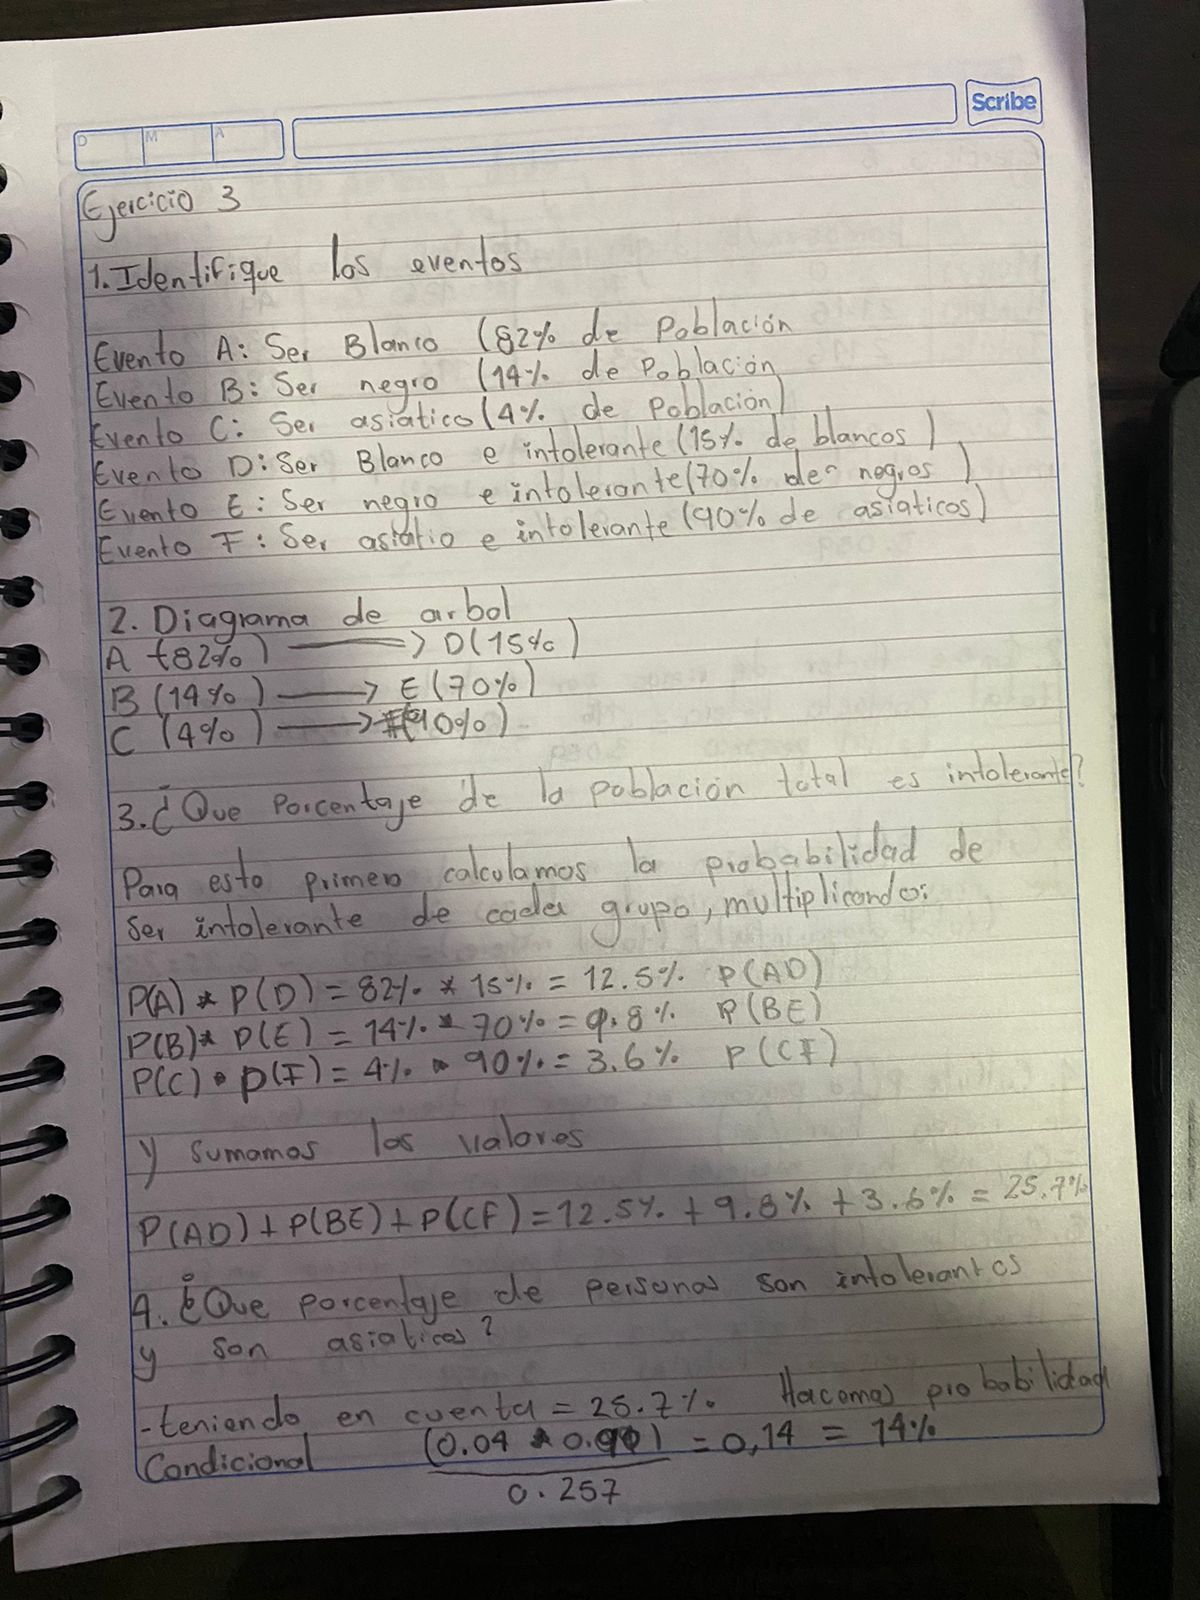 Scribe
D M A
Ejercicio 3
1. Identifique los eventos
Evento A: Ser Blanco (82% de Población
Evento B: Ser negro (14% de Población
Evento C: Ser asiatico (4% de Población)
Evento D: Ser Blanco e intolerante (15% de blancos)
Evento E: Ser negro e intolerante (70% de negros)
Evento F: Ser asiatio e intolerante (90% de asiaticos)
2. Diagrama de arbol
A (82%) → D (15%)
B (14%) → E (70%)
C (4%) → F (90%)
3. ¿Que Porcentaje de la población total es intolerante?
Para esto primero calculamos la probabilidad de
ser intolerante de cada grupo, multiplicando:
P(A) * P(D) = 82% * 15% = 12.5% P(AD)
P(B) * P(E) = 14% * 70% = 9.8% P(BE)
P(C) • P(F) = 4% * 90% = 3.6% P(CF)
y sumamos los valores
P(AD) + P(BE) + P(CF) = 12.5% + 9.8% + 3.6% = 25.7%
4. ¿Que porcentaje de personas son intolerantes
y son asiaticos?
-teniendo en cuenta = 25.7%. Hacemos probabilidad
Condicional (0.04 * 0.90) = 0,14 = 14%
0.257